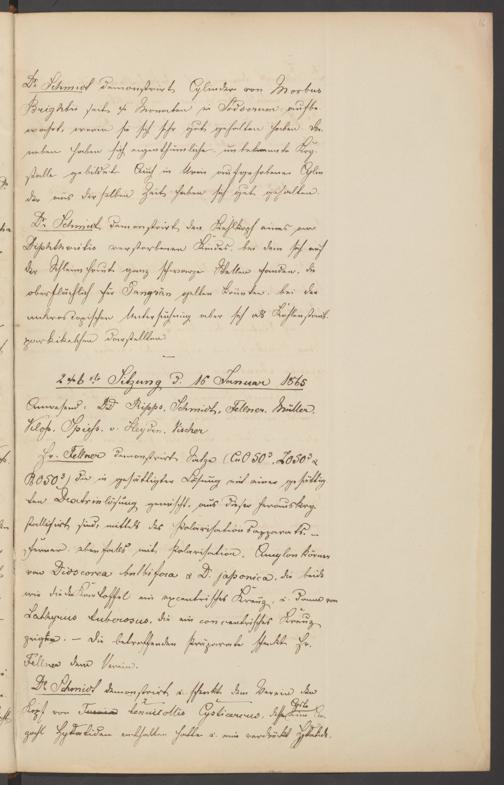 Dr. Schmidt demonstrirt Cylinder von Morbus
Brightii seit 4 Monaten in Südvernon aufbe
wahrt, worin sie sich sehr gut gehalten haben. Da
neben haben sich eigenthümliche unbekannte Kry-
stalle gebildet. Auch in Urin aufgehobene Cylin
der aus derselben Zeit haben sich gut gehalten.
Dr. Schmidt demonstrirt den Kehlkopf eines an
Diphtheritis verstorbenen Kindes, bei dem sich auf
der Schleimhaut ganz schwarze Stellen fanden, die
oberflächlich für Gangrän gelten konnten, bei der
mikroscopischen Untersuchung aber sich als Kohlenstaub-
partikelchen darstellten.
Sitzung d. 16 Januar 1865
Anwesend: DD Ripps, Schmidt, Fellner, Müller,
v. Heyden, Vischer
Hr. Fellner demonstrirt Salze (CuO SO³, ZO SO³ &
SO³) die in gesättigter Lösung mit einer gesättig
ten Dextrinlösung gemischt, aus dieser herauskry
stallisirt sind, mittelst des Polarisationsapparats, u
ferner ebenfalls mit Polarisation, Amylonkörner
von Dioscorea bulbifora & D. japonica, die beide
wie die der Kartoffel ein excentrisches Kreuz, u. von
Lathyrus tuberosus, die ein concentrisches Kreuz
zeigten. — Die betreffenden Präparate schenkt Hr.
Fellner dem Verein.
Dr Schmidt demonstrirt u. schenkt dem Verein den
Kopf von Taenia tenuicollis Cysticercus,
zahl Hydatiden enthalten hatte u. eine verdrückt Hydatide.